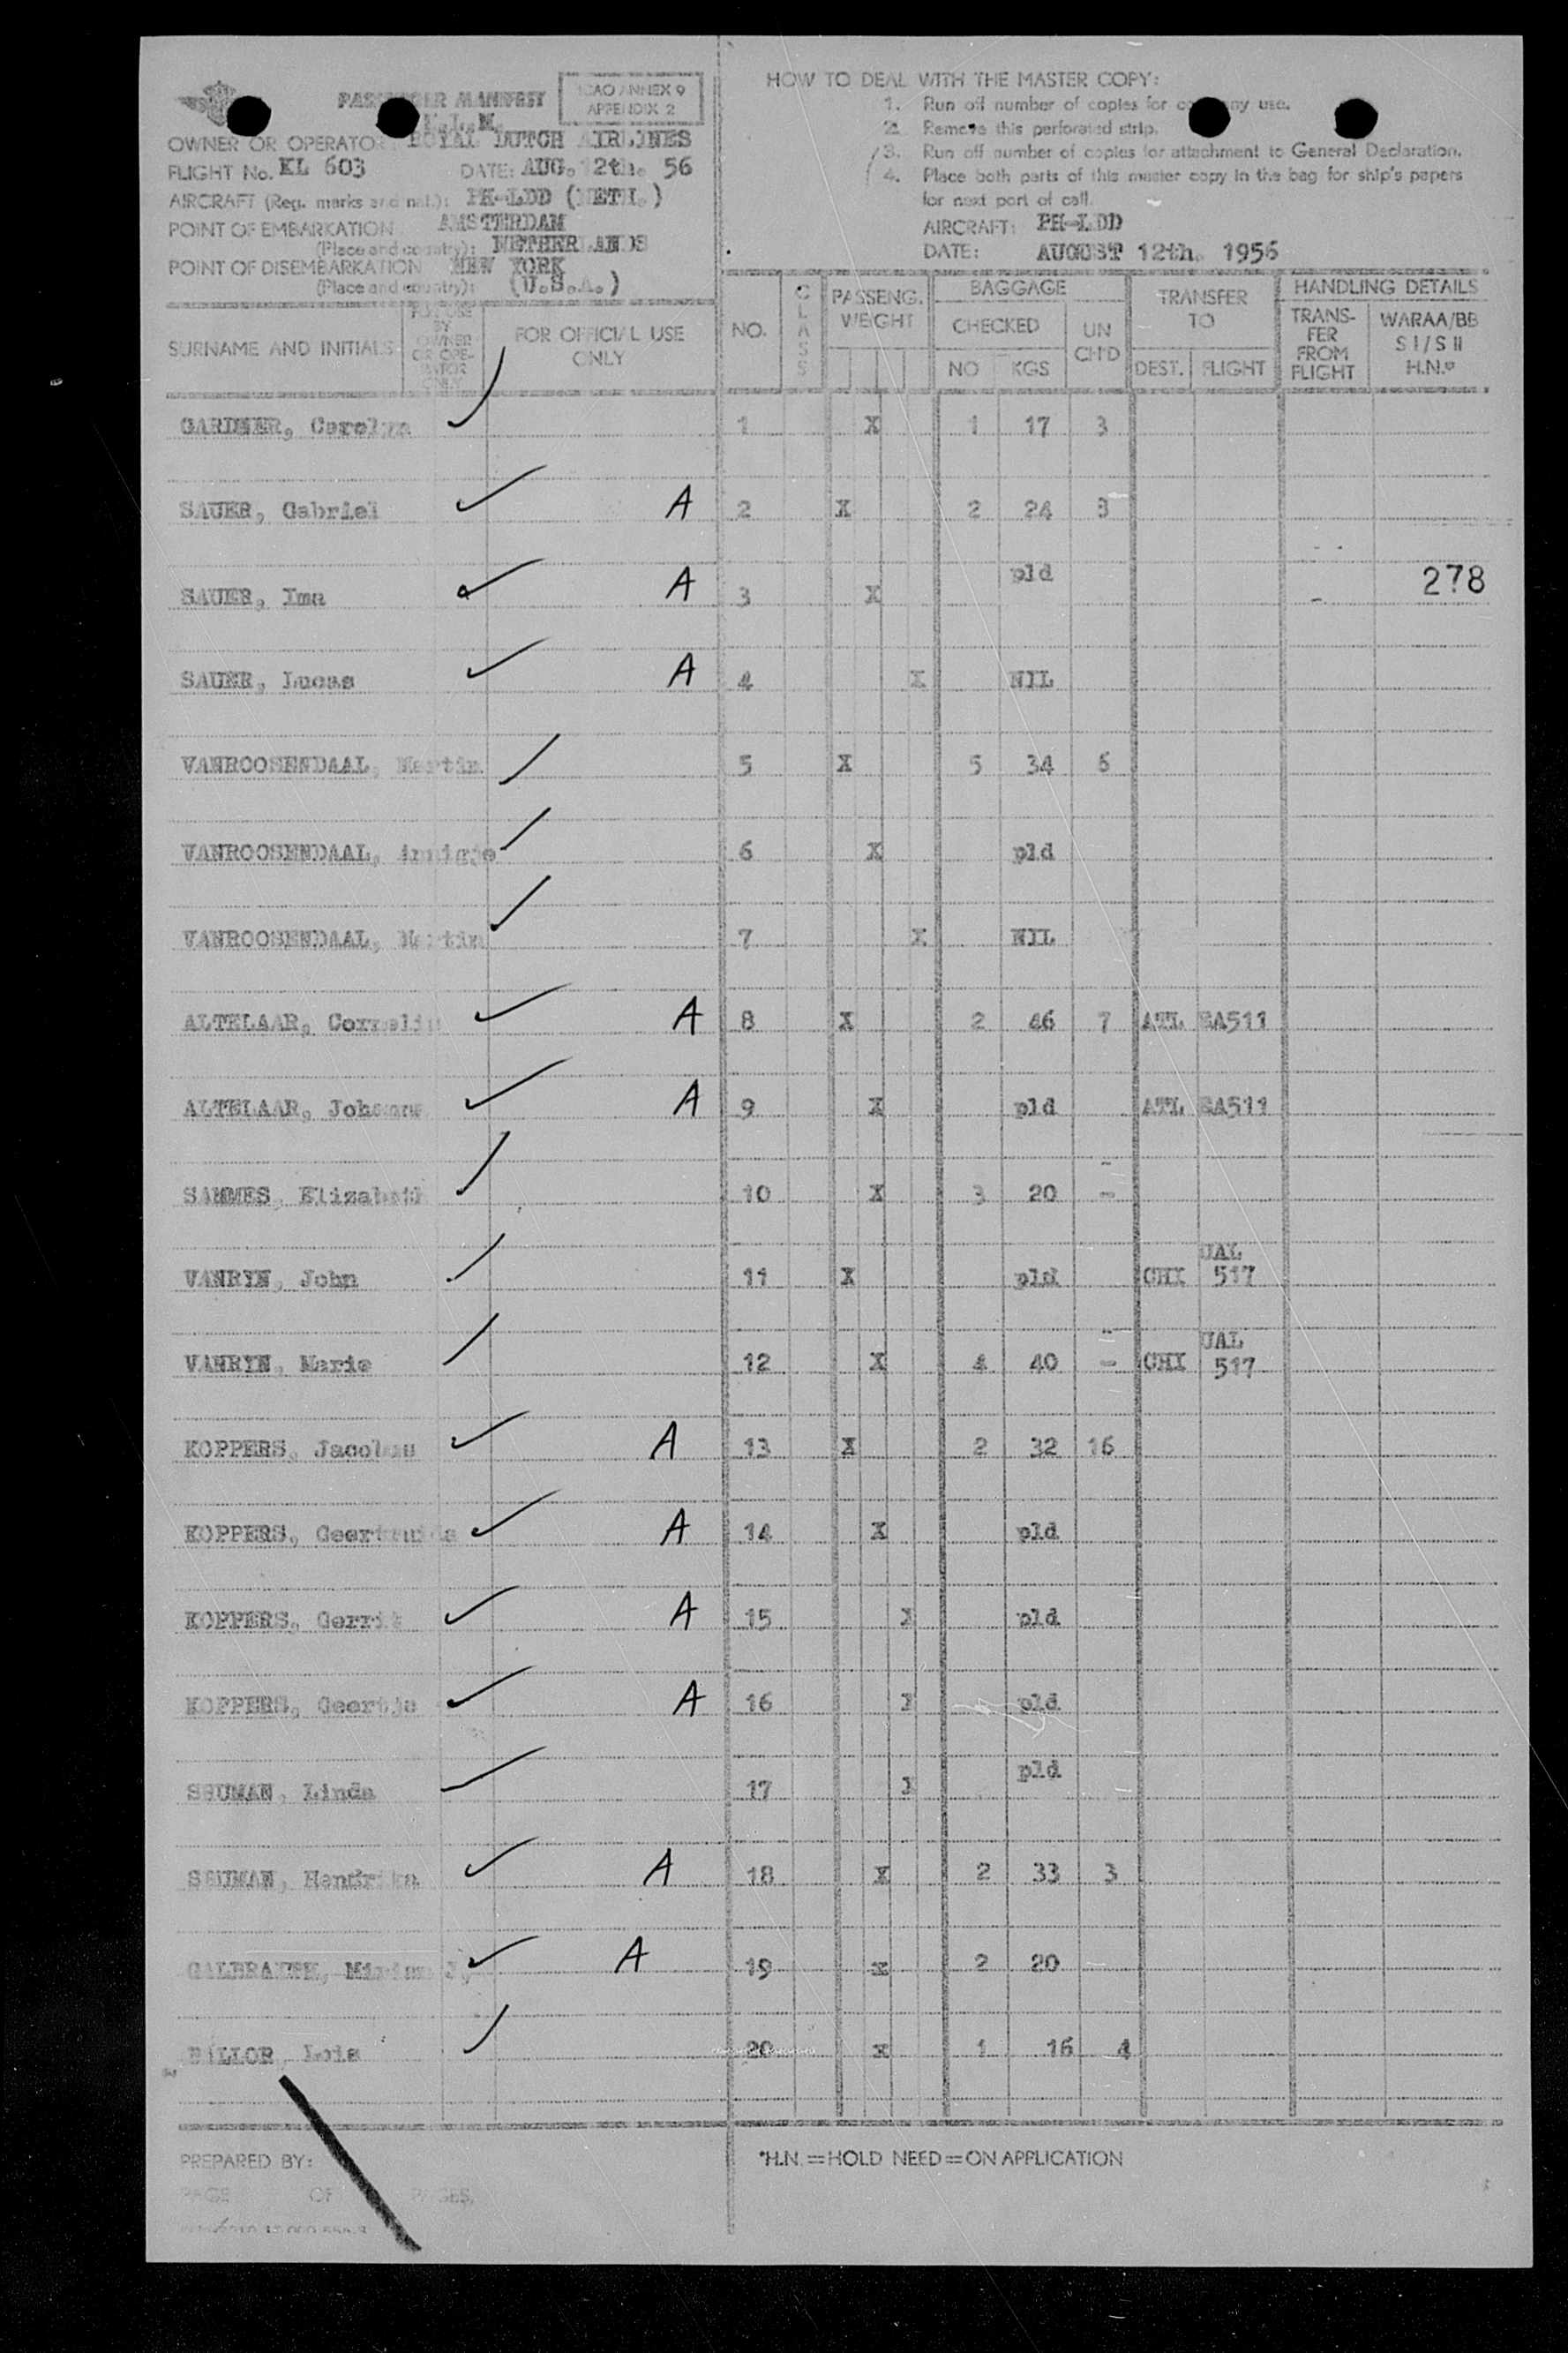 PASSENGER MANIFEST
ICAO ANNEX 9
APPENDIX 2
K.L.M.
OWNER OR OPERATOR: ROYAL DUTCH AIRLINES
FLIGHT No. KL 603 DATE: AUG. 12th. 56
AIRCRAFT (Reg. marks and nat.): PH-LDD (NETH.)
POINT OF EMBARKATION AMSTERDAM
(Place and country): NETHERLANDS
POINT OF DISEMBARKATION NEW YORK
(Place and country): (U.S.A.)
HOW TO DEAL WITH THE MASTER COPY:
1. Run off number of copies for company use.
2. Remove this perforated strip.
3. Run off number of copies for attachment to General Declaration.
4. Place both parts of this master copy in the bag for ship's papers
for next port of call.
AIRCRAFT: PH-LDD
DATE: AUGUST 12th. 1956
SURNAME AND INITIALS
FOR USE BY OWNER OR OPERATOR ONLY
FOR OFFICIAL USE ONLY
NO.
CLASS
PASSENG. WEIGHT
BAGGAGE
CHECKED
NO KGS
UN CH'D
TRANSFER TO
DEST. FLIGHT
HANDLING DETAILS
TRANS-FER FROM FLIGHT
WARAA/BB S I/S II H.N.*
GARDNER, Carolyn 1 X 1 17 3
SAUER, Gabriel A 2 X 2 24 8
SAUER, Ima A 3 X pld 278
SAUER, Lucas A 4 X NIL
VANROOSENDAAL, Martin 5 X 5 34 6
VANROOSENDAAL, Annigje 6 X pld
VANROOSENDAAL, Martin 7 X NIL
ALTELAAR, Cornelis A 8 X 2 46 7 ATL EA511
ALTELAAR, Johanna A 9 X pld ATL EA511
SAMMES, Elizabeth 10 X 3 20 -
VANRYN, John 11 X pld CHI UAL 517
VANRYN, Marie 12 X 4 40 - CHI UAL 517
KOPPERS, Jacobus A 13 X 2 32 16
KOPPERS, Geertruida A 14 X pld
KOPPERS, Gerrit A 15 X pld
KOPPERS, Geertje A 16 X pld
Linda 17 X pld
Hendrika A 18 X 2 33 3
GALBRAITH, Miriam J. A 19 x 2 20
Lois 20 x 1 16 4
PREPARED BY:
PAGE OF PAGES.
*H.N. = HOLD NEED = ON APPLICATION